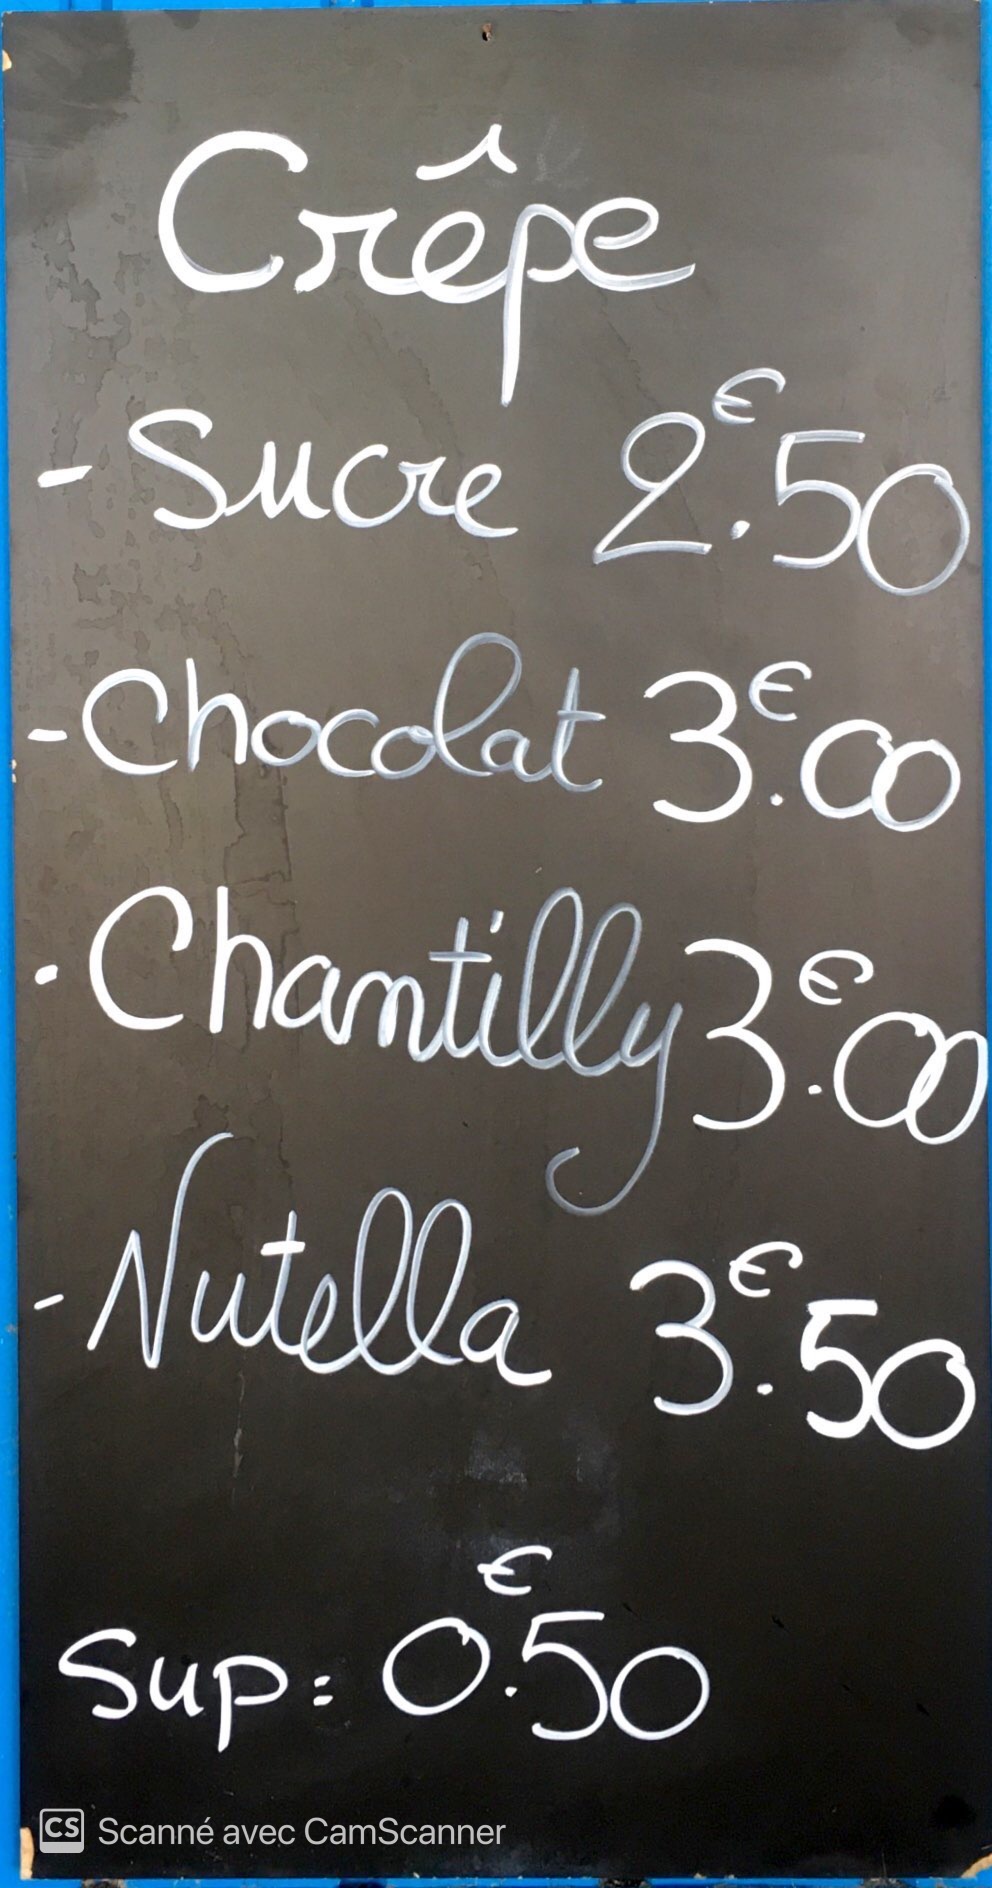 Crêpe
- Sucre 2€.50
- Chocolat 3€.00
- Chantilly 3€.00
- Nutella 3€.50
Sup: 0€.50
CS Scanné avec CamScanner